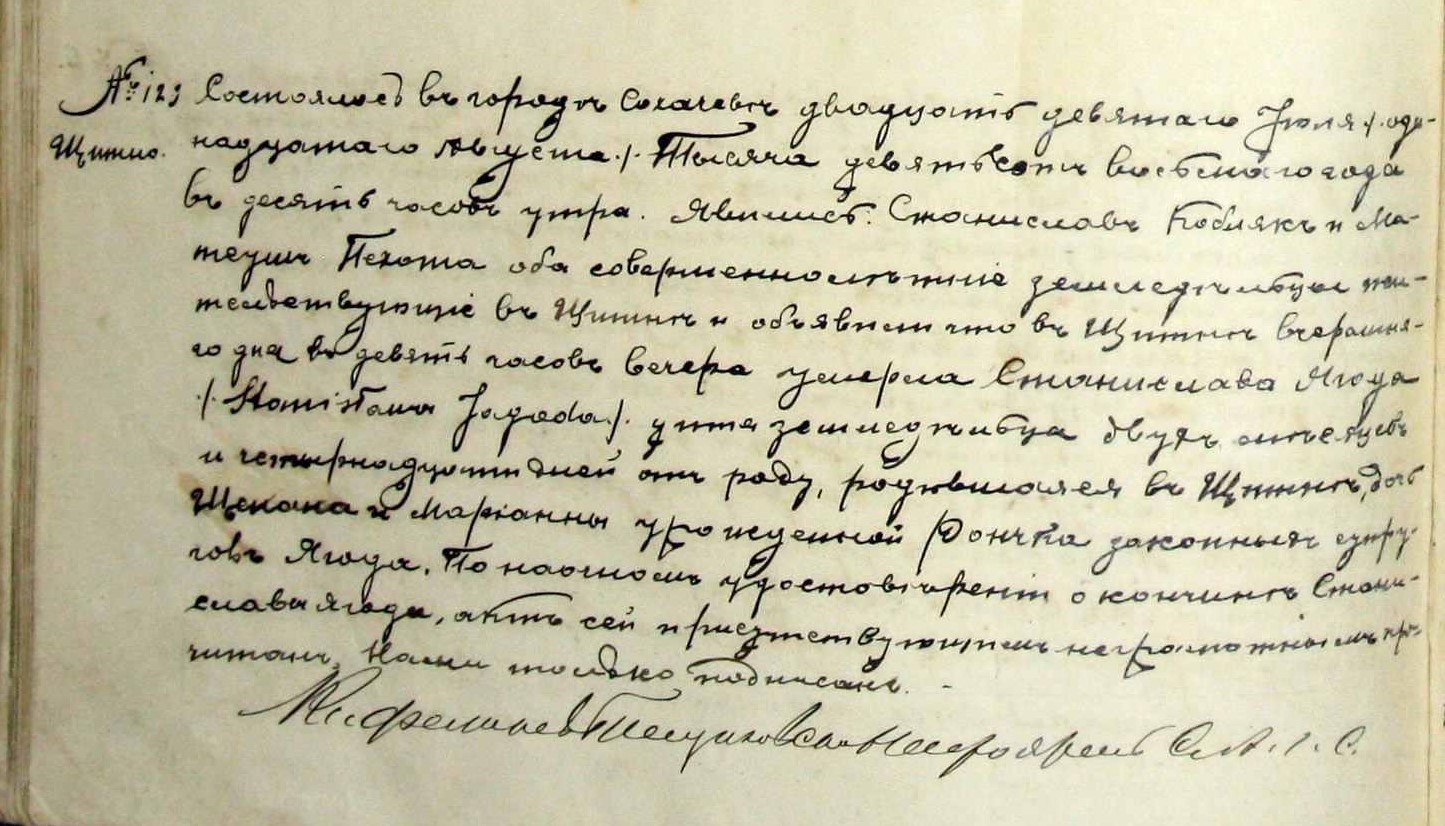 № 123 Состоялось въ городѣ Сохачевѣ двадцать девятаго Іюля /. оди-
Щитно. надцатаго Августа./. Тысяча девятьсотъ восьмаго года
въ десять часовъ утра. Явились: Станиславъ Коблякъ и Ма-
теушъ Пехота оба совершеннолѣтніе земледѣльцы жи-
тельствующіе въ Щитнѣ и объявили что въ Щитнѣ вчерашня-
го дня въ девять часовъ вечера умерла Станислава Ягода
/. Stanisława Jagoda./. дитя земледѣльца двухъ мѣсяцевъ
и четырнадцати дней отъ роду, родившаяся въ Щитнѣ, дочь
и Маріанны урожденной Рончка законныхъ супру-
говъ Ягода. По наочномъ удостовѣреніи о кончинѣ Стани-
славы Ягода, актъ сей присутствующимъ неграмотнымъ про-
читанъ, Нами только подписанъ. -
Кс. С. А. Г. С.